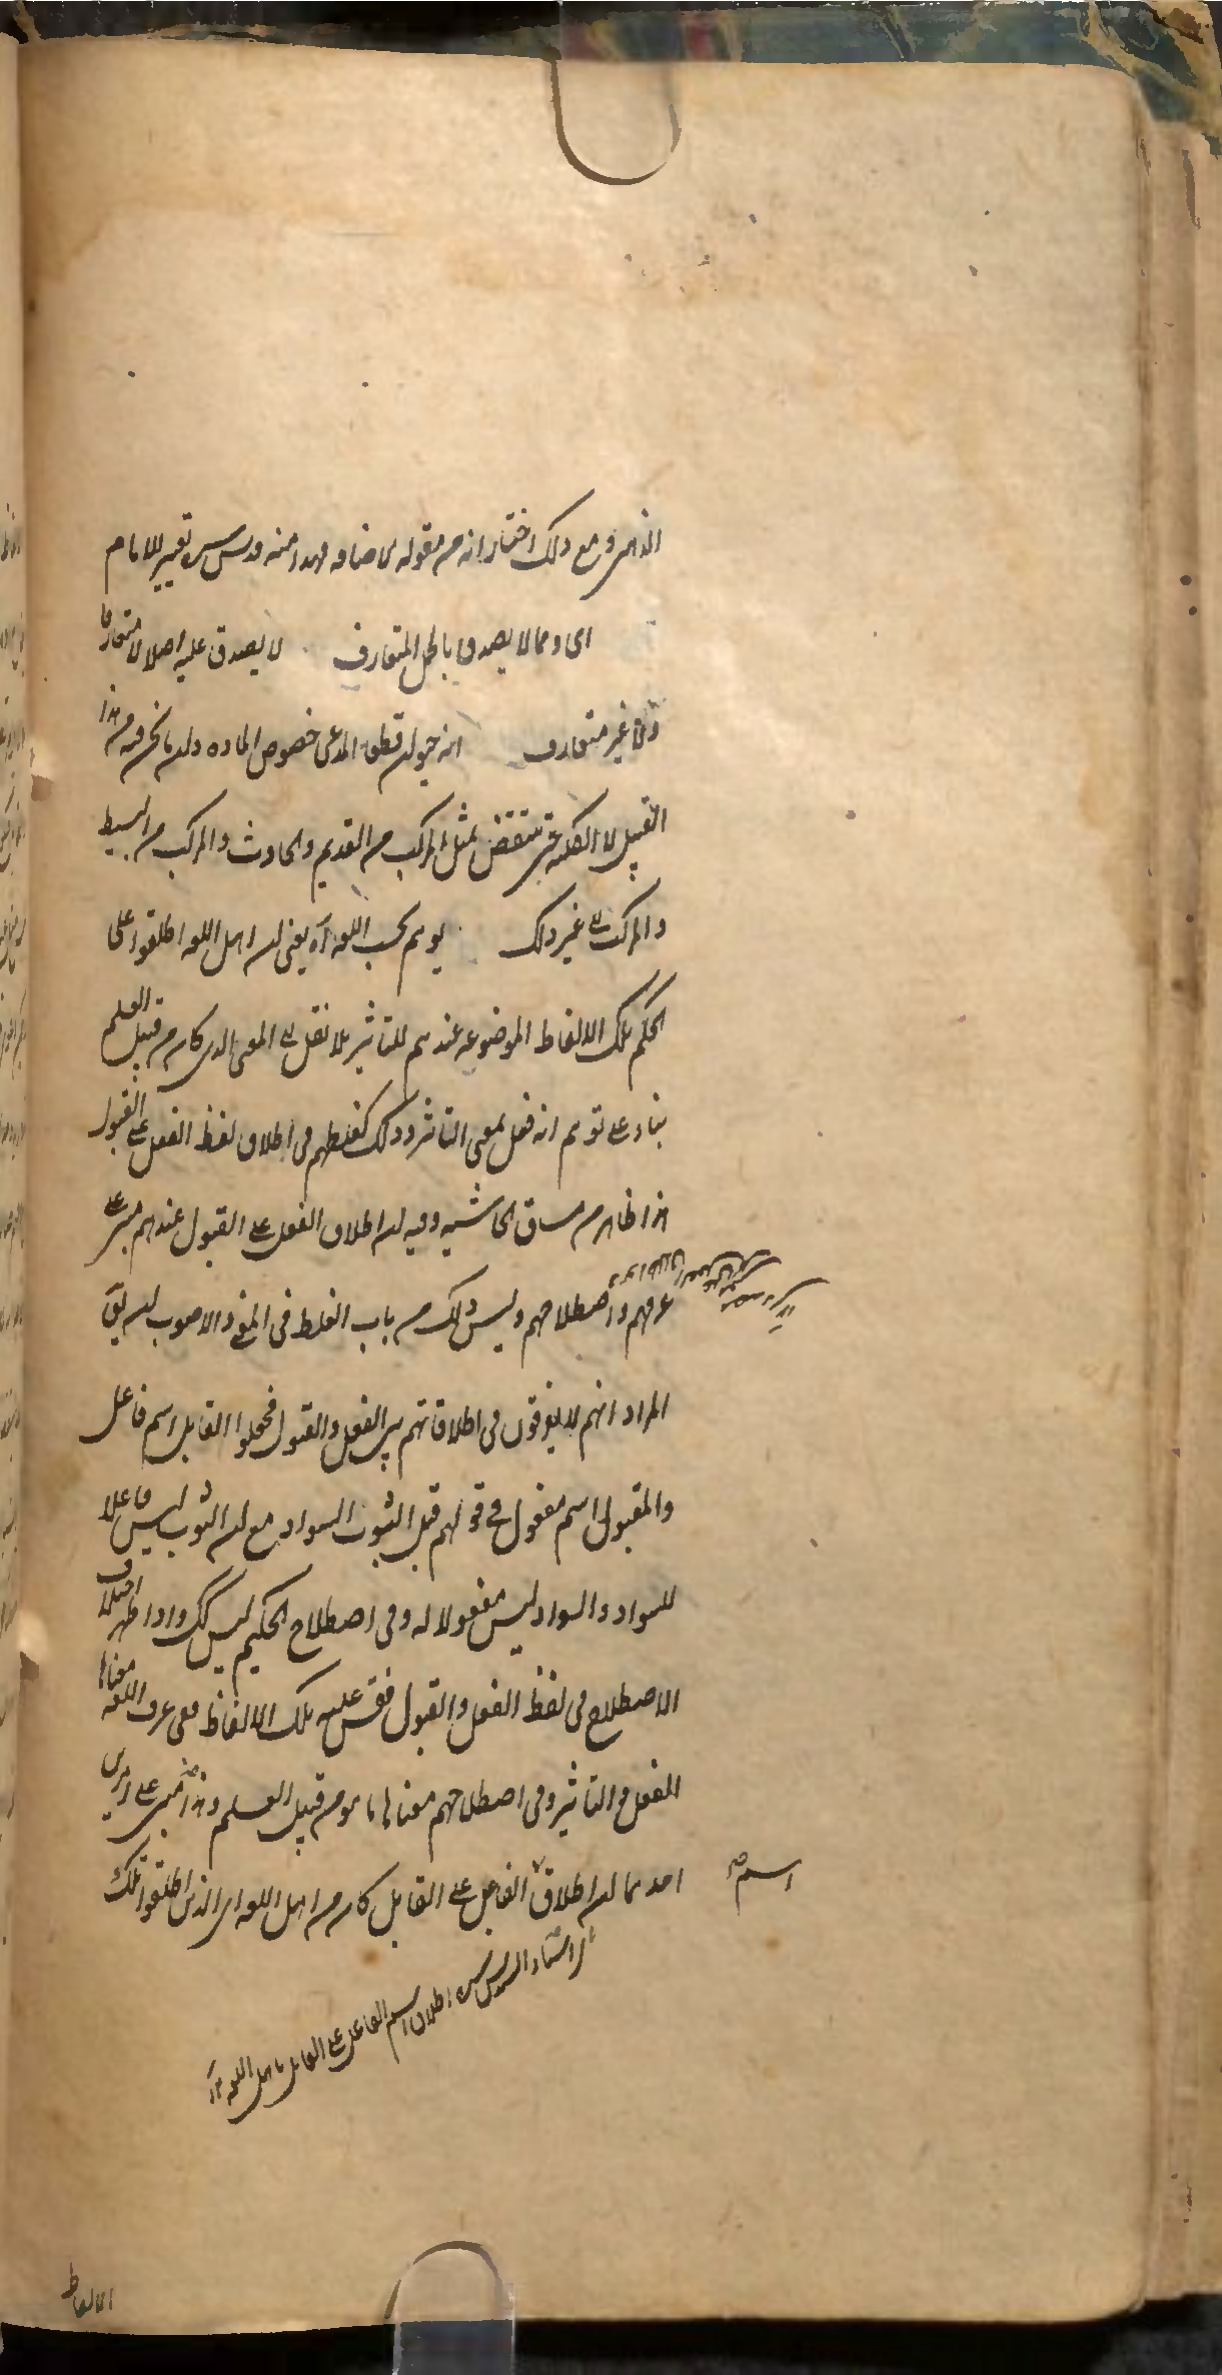 الذهن ومع ذلك اختار انه من مقوله الاضافه فهذا منه قدس سره تعيير للامام
اى ومما لا يصدق بالحمل المتعارف لا يصدق عليه اصلا لا متعارفا
ولا غير متعارف انه حيوان قطعا المدعى خصوص الماده وان ما نحن فيه من هذا
القبيل لا الكليه حتى ينتقض بمثل المركب من القديم والحادث والمركب من البسيط
والمركب الى غير ذلك يوهم بحسب اللغه آه يعنى ان اهل اللغه اطلقوا على
الحكم تلك الالفاظ الموضوعه عندهم للتاثير بلا نقل الى المعنى الذى كان من قبيل العلم
بناء على توهم انه فعل بمعنى التاثير وذلك كغلطهم فى اطلاق لفظ الفعل على القبول
هذا ظاهر من مساق الحاشيه وفيه ان اطلاق الفعل على القبول عندهم مبنى على
عرفهم واصطلاحهم وليس ذلك من باب الغلط فى المعنى والاصوب ان يقال
المراد انهم لا يفرقون فى اطلاقاتهم بين الفعل والقبول فجعلوا القابل اسم فاعل
والمقبول اسم مفعول فى قولهم قبل الثوب السواد مع ان الثوب ليس فاعلا
للسواد والسواد ليس مفعولا له وفى اصطلاح الحكيم ليس كك واذا ظهر اختلاف
الاصطلاح فى لفظ الفعل والقبول فقس عليه تلك الالفاظ ففى عرف اللغه معناها
الفعل والتاثير وفى اصطلاحهم معناها ما هو من قبيل العلم وهذا مبنى على امرين
احدهما ان اطلاق الفاعل على القابل كان من اهل اللغه اى الذين اطلقوا تلك
اسم صح
اطلاق اسم الفاعل على القابل اهل اللغه ١٢
الالفاظ